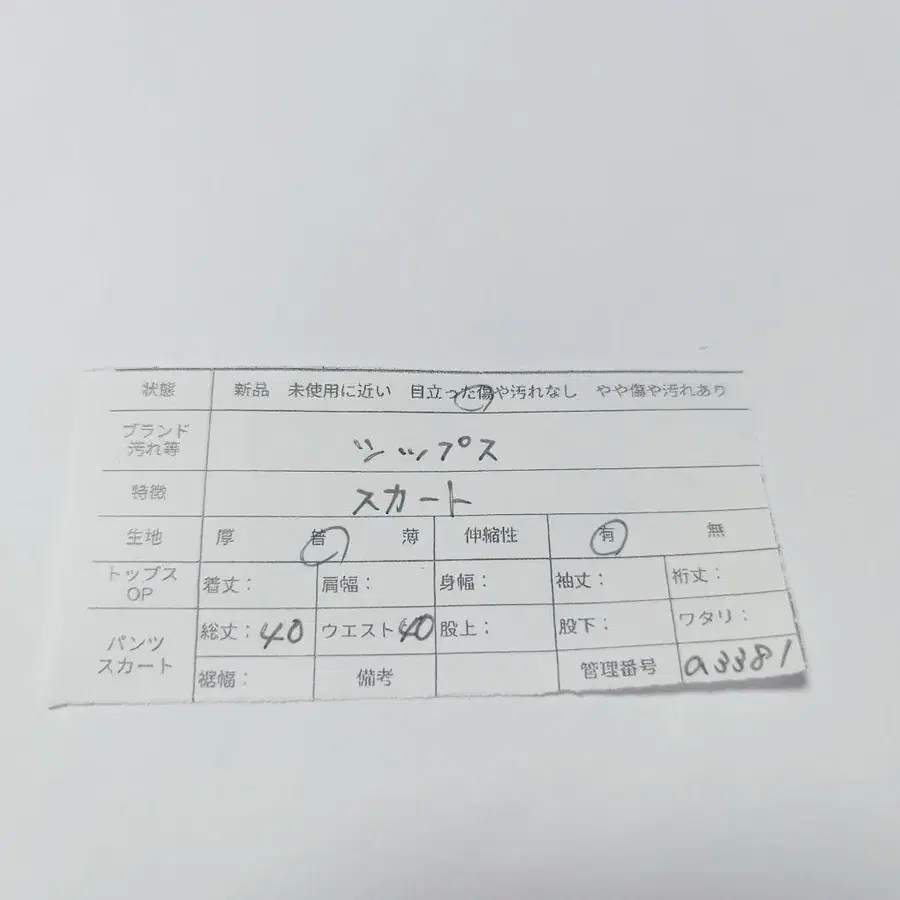 状態 新品 未使用に近い 目立った傷や汚れなし やや傷や汚れあり
ブランド
汚れ等 シップス
特徴 スカート
生地 厚 普 薄 伸縮性 有 無
トップス
OP 着丈： 肩幅： 身幅： 袖丈： 裄丈：
パンツ
スカート 総丈：40 ウエスト40 股上： 股下： ワタリ：
裾幅： 備考 管理番号 a3381